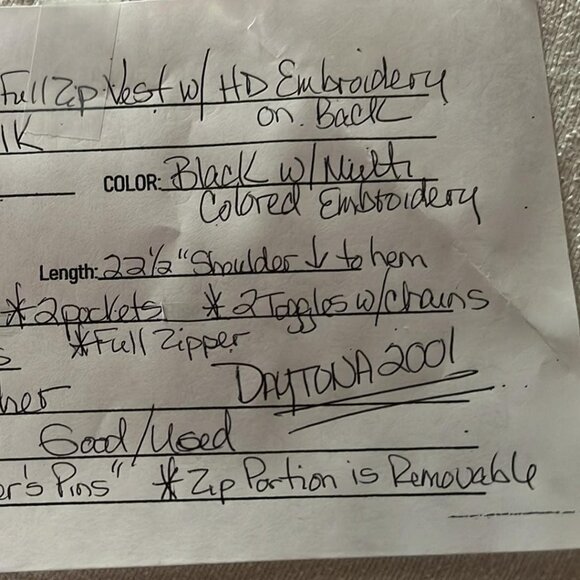 Full Zip Vest w/ HD Embroidery
on Back
COLOR: Black w/ Multi
Colored Embroidery
Length: 22 1/2" Shoulder ↓ to hem
* 2 pockets * 2 Toggles w/ chains
* Full Zipper
DAYTONA 2001
her
Good/Used
er's Pins" * Zip Portion is Removable